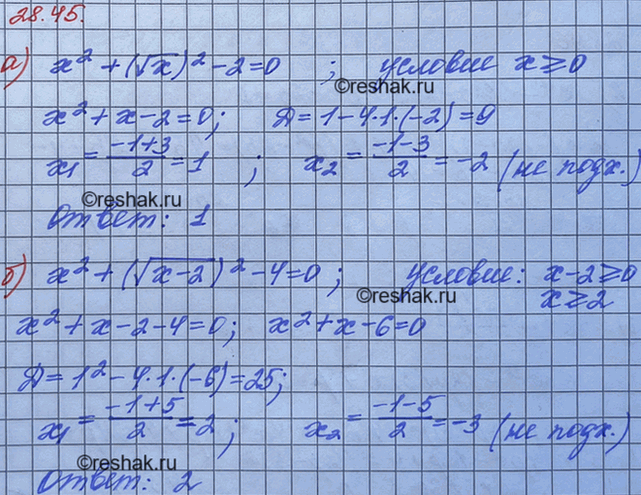 28.45.
а) x² + (√x)² - 2 = 0 ; условие x ⩾ 0
©reshak.ru
x² + x - 2 = 0; Д = 1 - 4·1·(-2) = 9
x₁ = (-1+3)/2 = 1 ; x₂ = (-1-3)/2 = -2 (не подх.)
©reshak.ru
Ответ: 1
б) x² + (√(x-2))² - 4 = 0 ; условие: x - 2 ⩾ 0
©reshak.ru x ⩾ 2
x² + x - 2 - 4 = 0; x² + x - 6 = 0
Д = 1² - 4·1·(-6) = 25;
x₁ = (-1+5)/2 = 2 ; x₂ = (-1-5)/2 = -3 (не подх.)
©reshak.ru
Ответ: 2